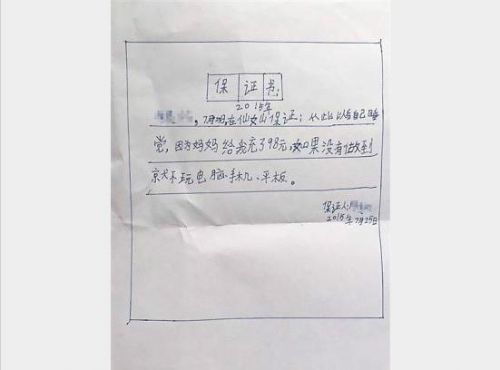 保证书
2015年
在仙女山保证：从此以后自己睡
觉，因为妈妈给我充了98元，如果没有做到
就不玩电脑、手机、平板。
保证人：
2015年7月25日